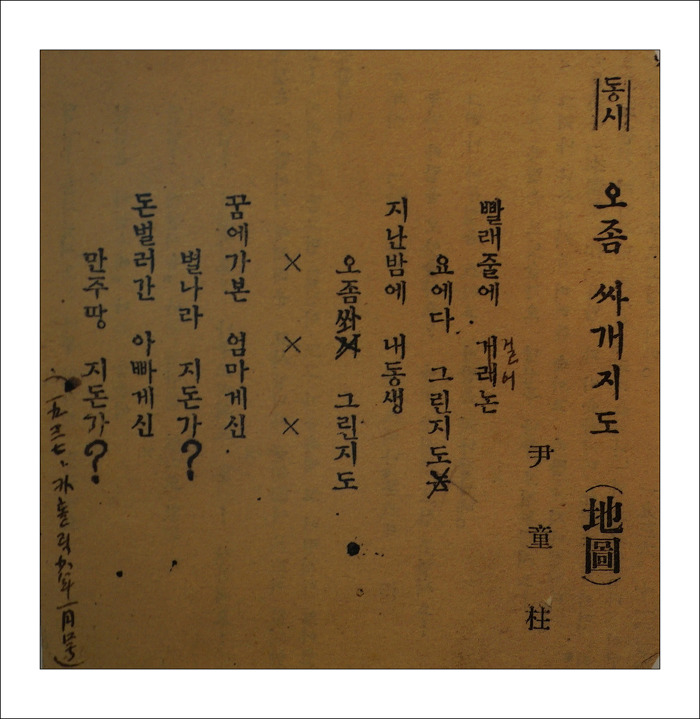 동시
오줌 싸개지도 (地圖)
尹 童 柱
빨래줄에 개래논
걸어
요에다 그린지도
지난밤에 내동생
오줌쏴 그린지도
× × ×
꿈에가본 엄마게신
별나라 지돈가?
돈벌러간 아빠게신
만주땅 지돈가?
카톨릭少年 一月号)